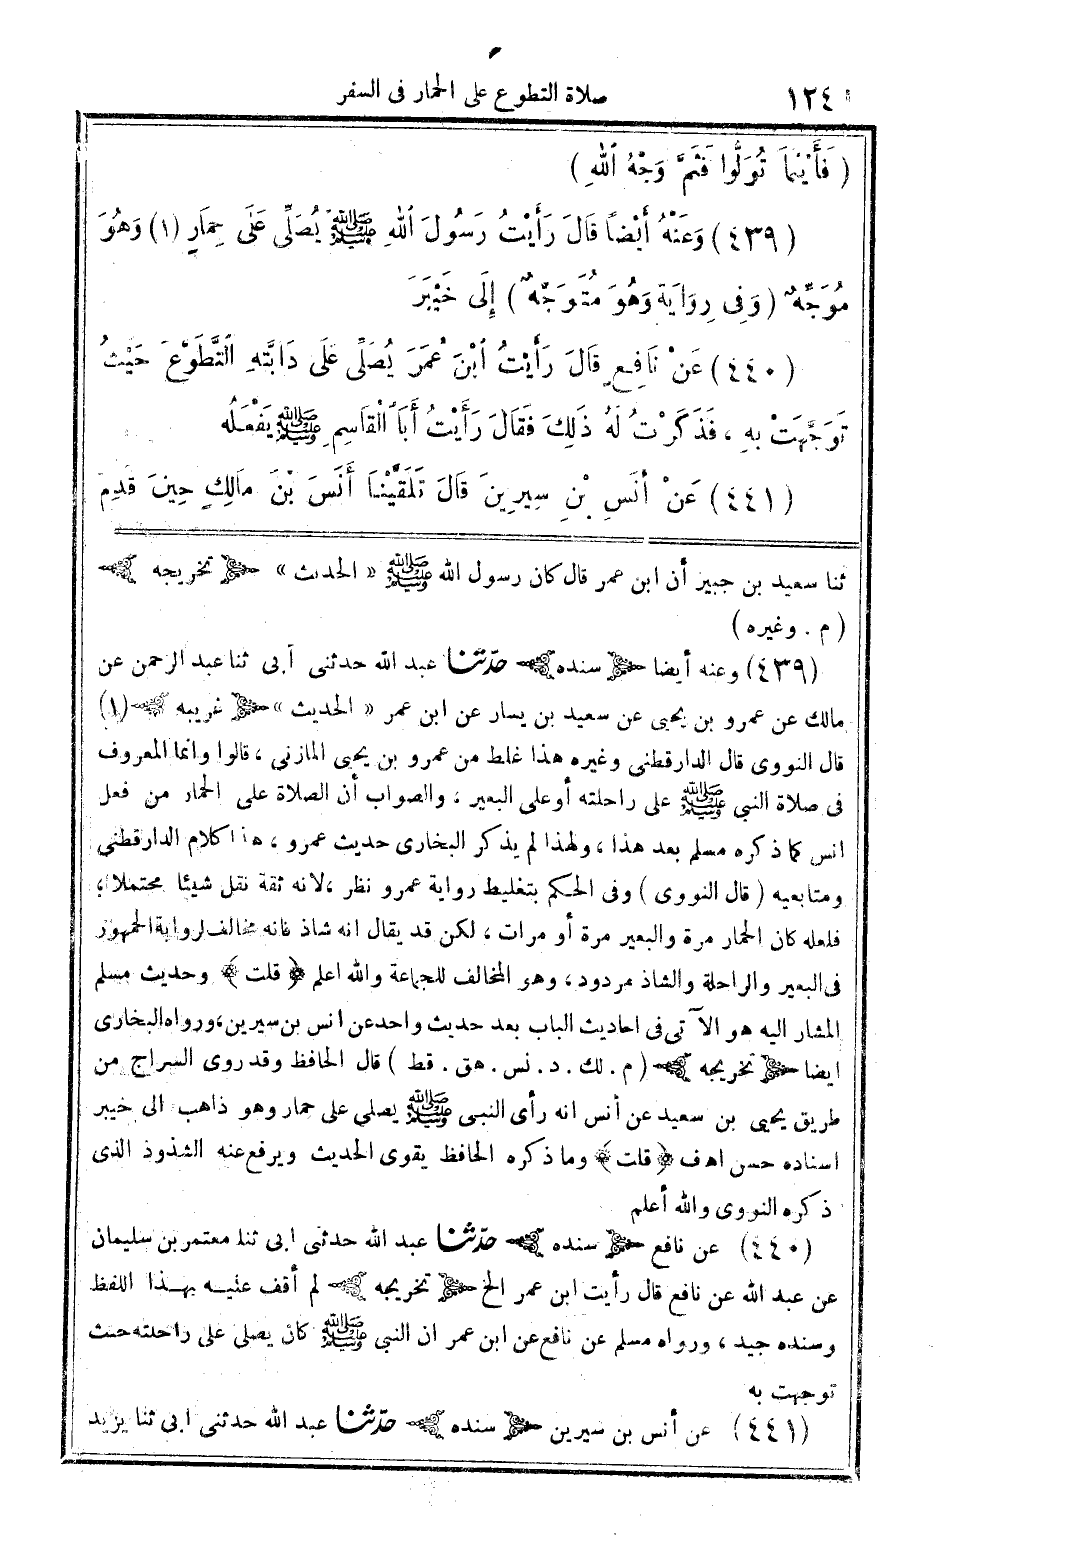 ١٢٤ صلاة التطوع على الحمار فى السفر
( فَأَيْنَمَا تُوَلُّوا فَثَمَّ وَجْهُ ٱللهِ )
(٤٣٩) وَعَنْهُ أَيْضًا قَالَ رَأَيْتُ رَسُولَ اللهِ ﷺ يُصَلِّى عَلَى حِمَارٍ (١) وَهُوَ
مُوَجِّهٌ (وَفِى رِوَايَةٍ وَهُوَ مُتَوَجِّهٌ) إِلَى خَيْبَرَ
(٤٤٠) عَنْ نَافِعٍ قَالَ رَأَيْتُ ٱبْنَ عُمَرَ يُصَلِّى عَلَى دَابَّتِهِ ٱلتَّطَوُّعَ حَيْثُ
تَوَجَّهَتْ بِهِ ، فَذَكَرْتُ لَهُ ذَلِكَ فَقَالَ رَأَيْتُ أَبَا ٱلْقَاسِمِ ﷺ يَفْعَلُه
(٤٤١) عَنْ أَنَسِ بْنِ سِيرِينَ قَالَ تَلَقَّيْنَا أَنَسَ بْنَ مَالِكٍ حِينَ قَدِمَ
ثنا سعيد بن جبير أن ابن عمر قال كان رسول الله ﷺ « الحديث » تخريجه
( م . وغيره )
(٤٣٩) وعنه أيضا سنده حدّثنا عبد الله حدثنى أبى ثنا عبد الرحمن عن
مالك عن عمرو بن يحيى عن سعيد بن يسار عن ابن عمر « الحديث » غريبه (١)
قال النووى قال الدارقطنى وغيره هذا غلط من عمرو بن يحيى المازني ، قالوا وانما المعروف
فى صلاة النبي ﷺ على راحلته أوعلى البعير ، والصواب أن الصلاة على الحمار من فعل
انس كما ذكره مسلم بعد هذا ، ولهذا لم يذكر البخارى حديث عمرو ، هذا كلام الدارقطني
ومتابعيه ( قال النووى ) وفى الحكم بتغليط رواية عمرو نظر ، لانه ثقة نقل شيئا محتملا ،
فلعله كان الحمار مرة والبعير مرة أو مرات ، لكن قد يقال انه شاذ فانه مخالف لرواية الجمهور
فى البعير والراحلة والشاذ مردود ، وهو المخالف للجماعة والله اعلم ﴿ قلت ﴾ وحديث مسلم
المشار اليه هو الآتى فى احاديث الباب بعد حديث واحد عن انس بن سيرين، ورواه البخارى
ايضا تخريجه ( م . لك . د . نس . هق . قط ) قال الحافظ وقد روى السراج من
طريق يحيى بن سعيد عن أنس انه رأى النبى ﷺ يصلي على حمار وهو ذاهب الى خيبر
اسناده حسن اهـ ف ﴿ قلت ﴾ وما ذكره الحافظ يقوى الحديث ويرفع عنه الشذوذ الذى
ذكره النووى والله أعلم
(٤٤٠) عن نافع سنده حدّثنا عبد الله حدثنى ابى ثنا معتمر بن سليمان
عن عبد الله عن نافع قال رأيت ابن عمر الخ تخريجه لم أقف عليه بهذا اللفظ
وسنده جيد ، ورواه مسلم عن نافع عن ابن عمر ان النبي ﷺ كان يصلى على راحلته حيث
توجهت به
(٤٤١) عن أنس بن سيرين سنده حدّثنا عبد الله حدثنى ابى ثنا يزيد